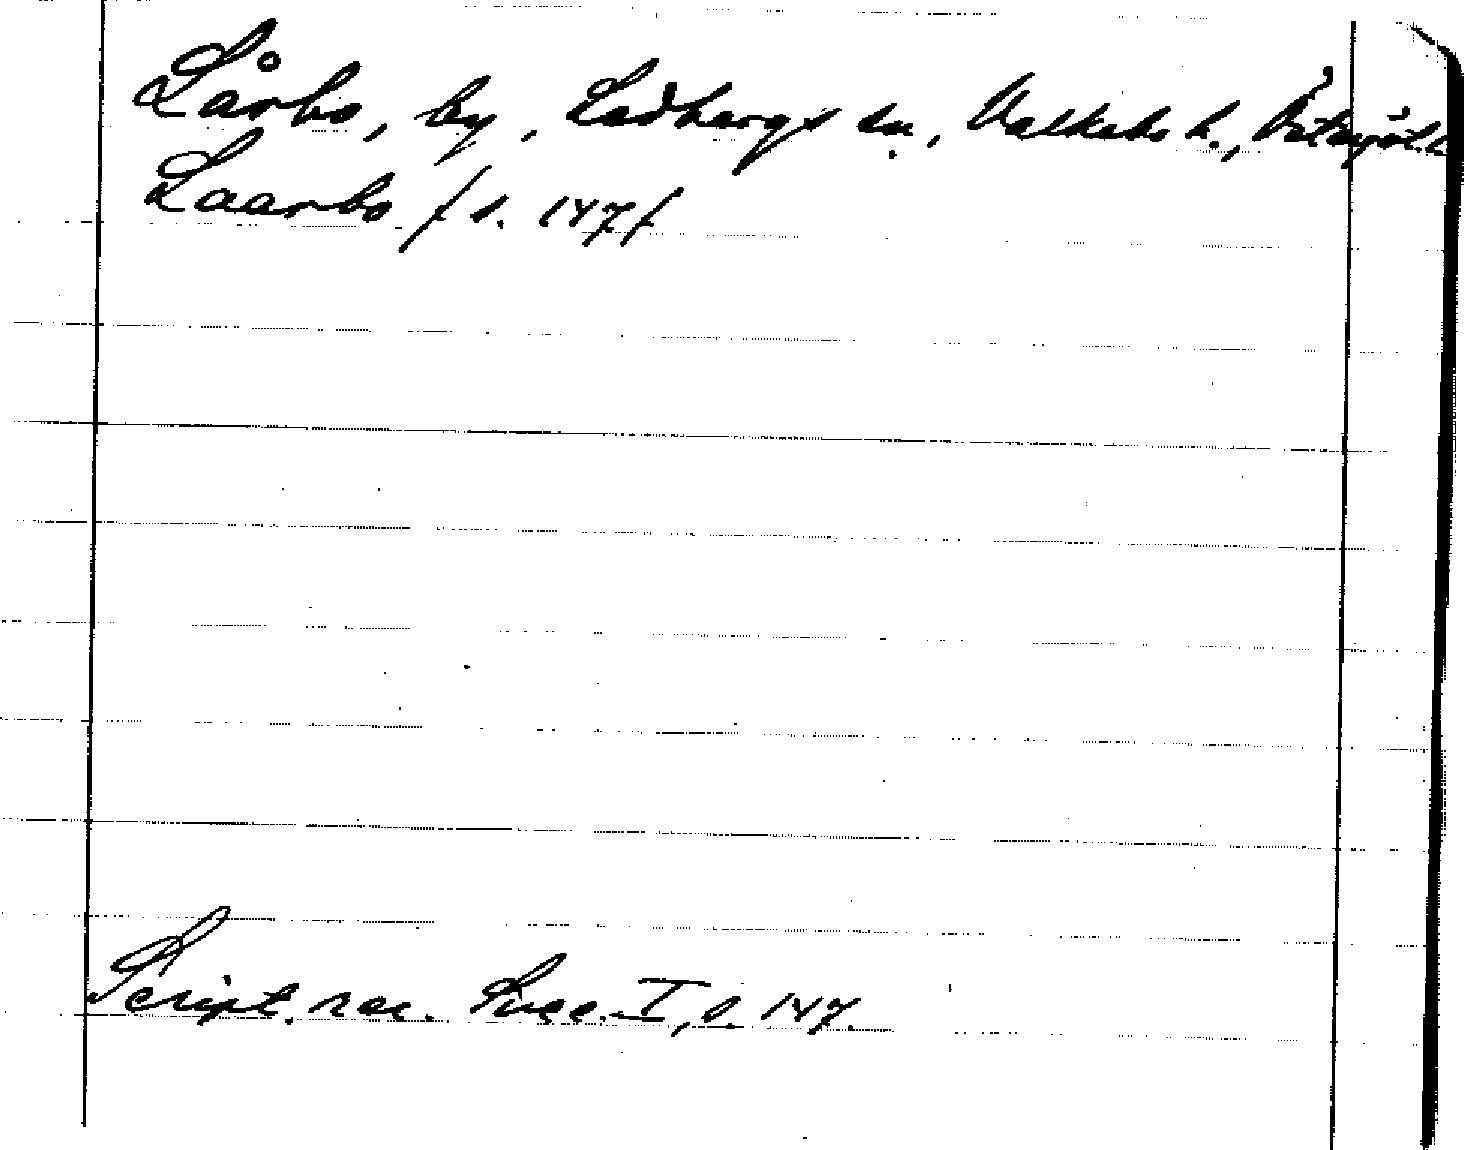 Lårbo, by, Ledbergs sn., Valkebo h., Östergötl.
Laarbo / s. 147/
Script. rer. Svec. I, s. 147.